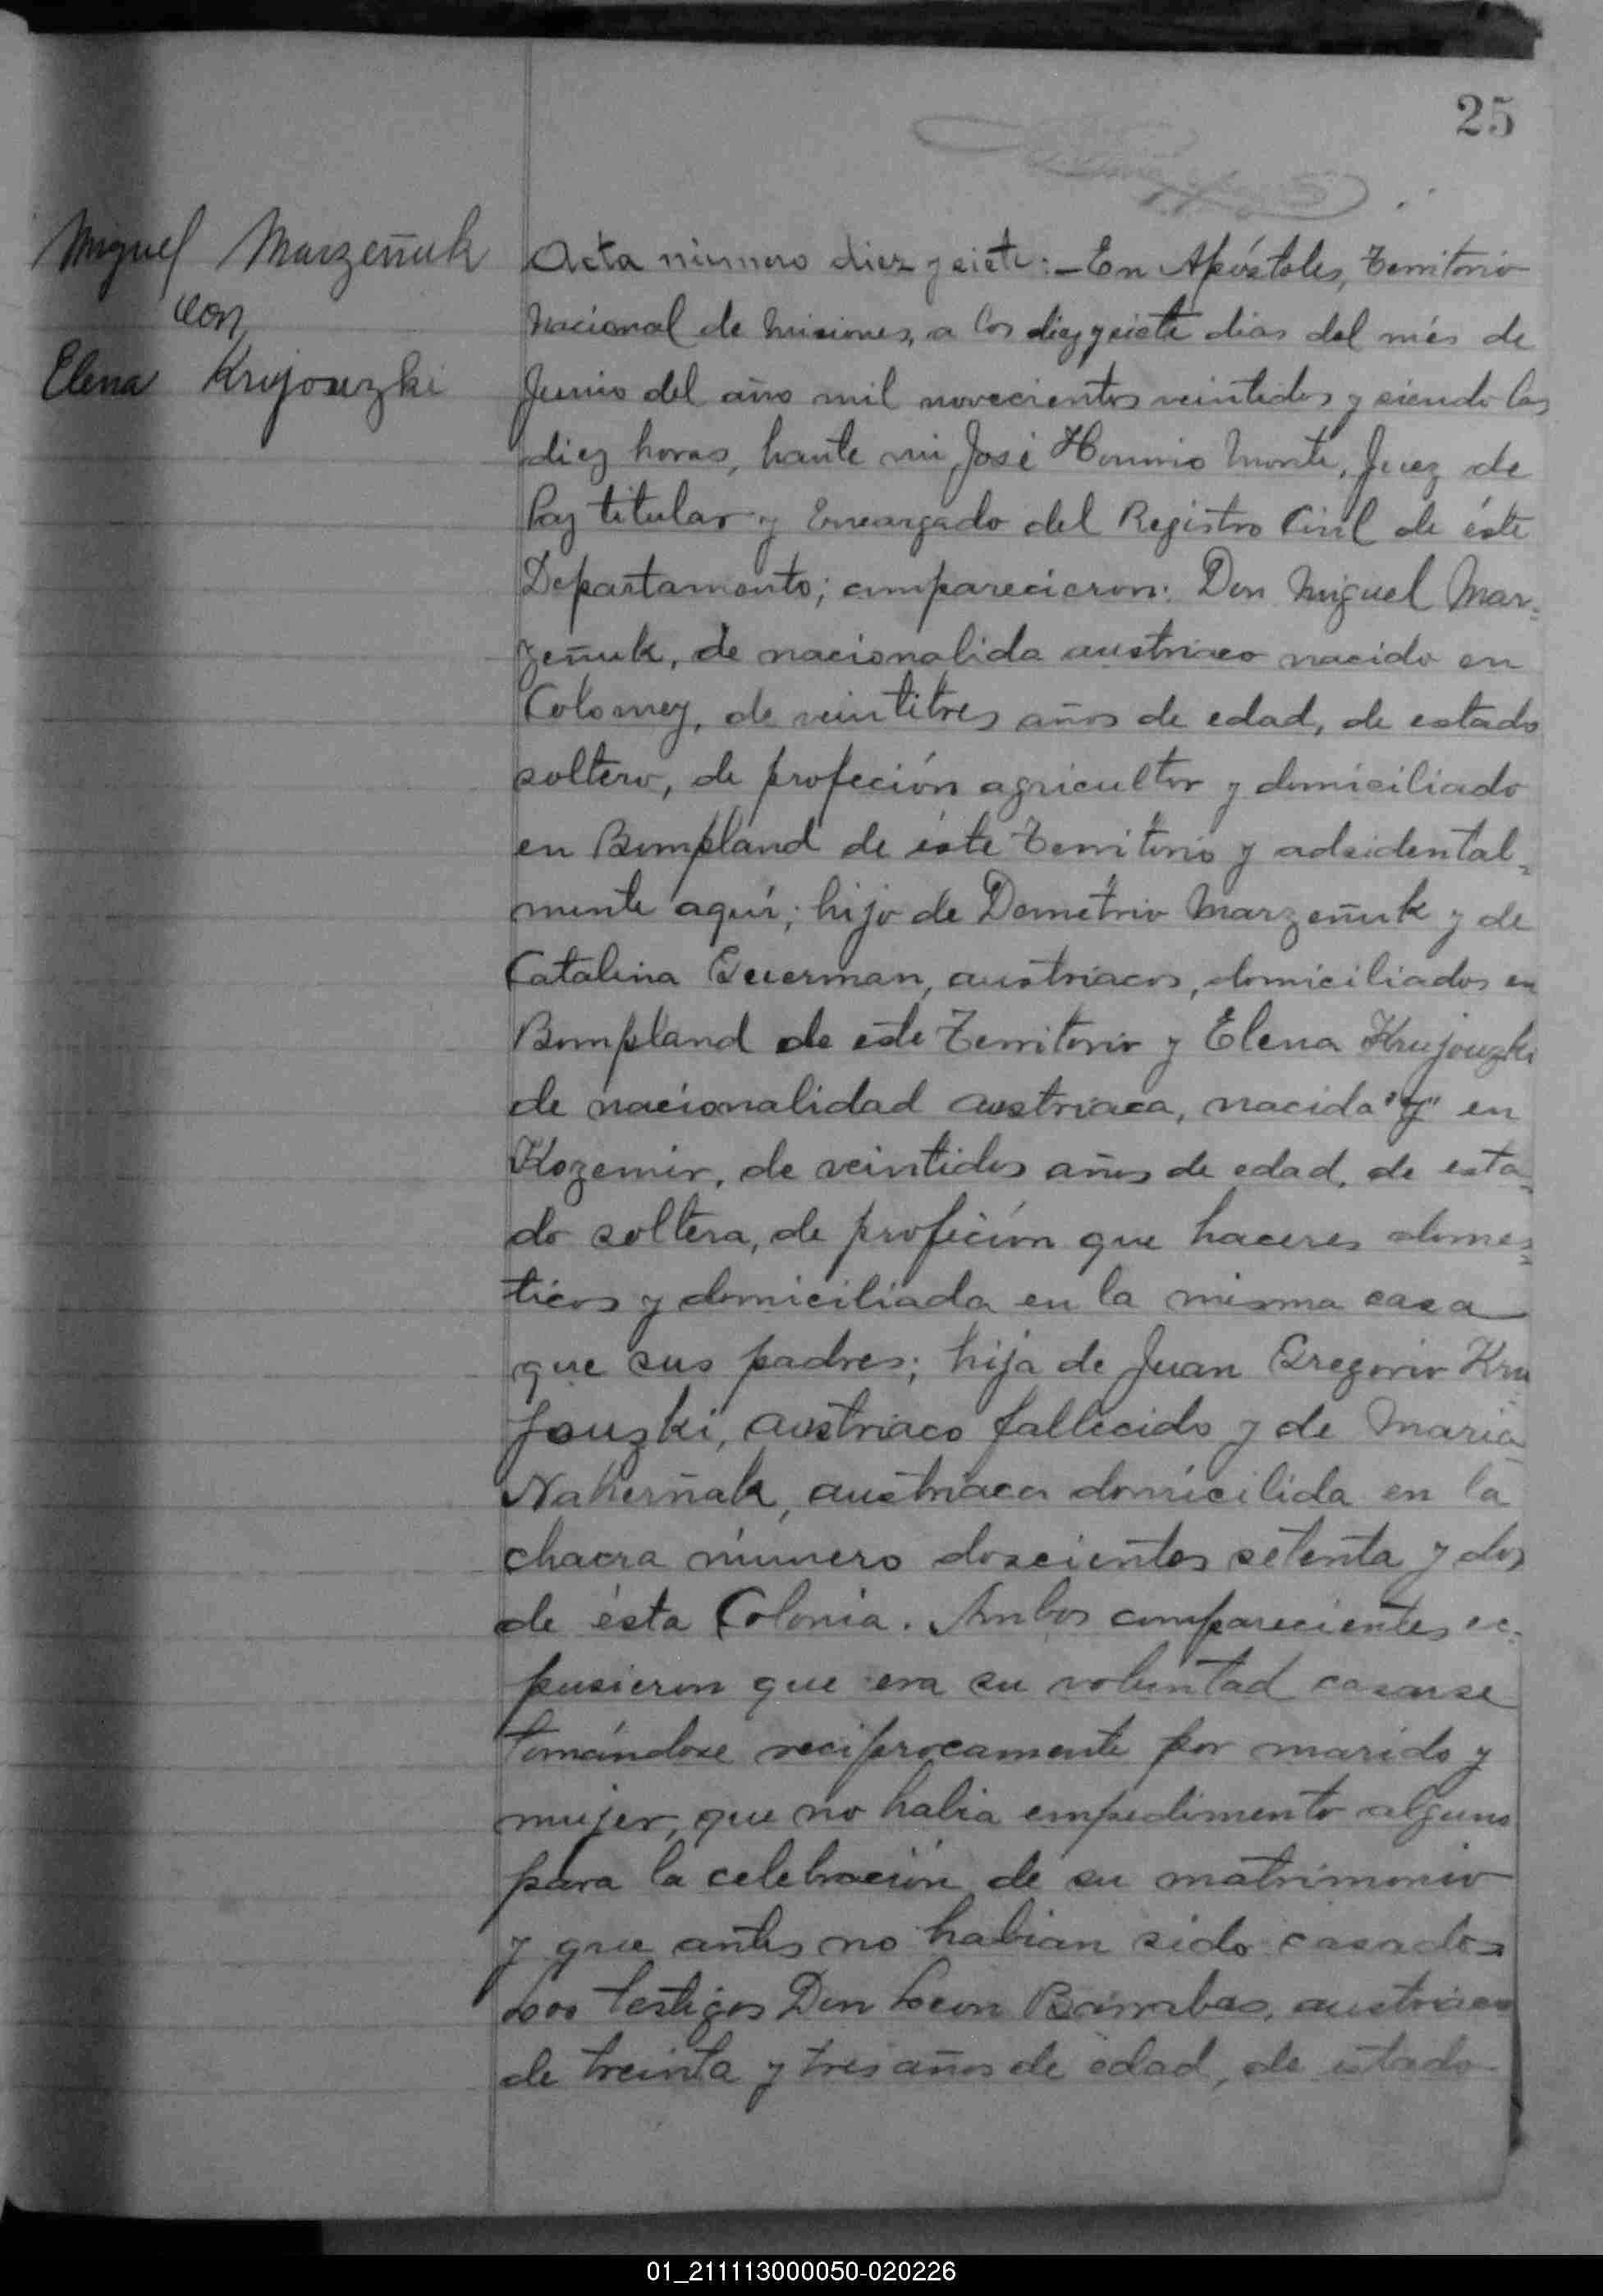 25
Miguel Marzeñuk
con
Elena Krujouzki
Acta número diez y siete:- En Apóstoles, Territorio
Nacional de Misiones, a los diez y siete dias del més de
Junio del año mil novecientos veintidos y siendo las
diez horas, hante mi José Honorio Monte, Juez de
Paz titular y Encargado del Registro Civil de éste
Departamento; comparecieron: Don Miguel Mar-
zeñuk, de nacionalida austriaco nacido en
Colomey, de veintitres años de edad, de estado
soltero, de profeción agricultor y domiciliado
en Bompland de éste Territorio y adsidental-
mente aquí; hijo de Demétrio Marzeñuk y de
Catalina Guerman, austriacos, domiciliados en
Bompland de este Territorio y Elena Krujouzki
de nacionalidad austriaca, nacida "y" en
Kozemir, de veintidos años de edad, de esta-
do soltera, de profición que haceres domes-
ticos y domiciliada en la misma casa
que sus padres; hija de Juan Gregorio Kru
jouzki, austriaco fallecido y de Maria
Nakerñak, austriaca domicilida en la
chacra número doscientos setenta y dos
de ésta Colonia. Ambos comparecientes ec-
pusieron que era su voluntad casarse
tomándose reciprocamente por marido y
mujer, que no habia empedimento alguno
para la celebración de su matrimonio
y que antes no habian sido casados
Los testigos Don Leon Barrabas, austriaco
de treinta y tres años de edad, de estado
01_211113000050-020226